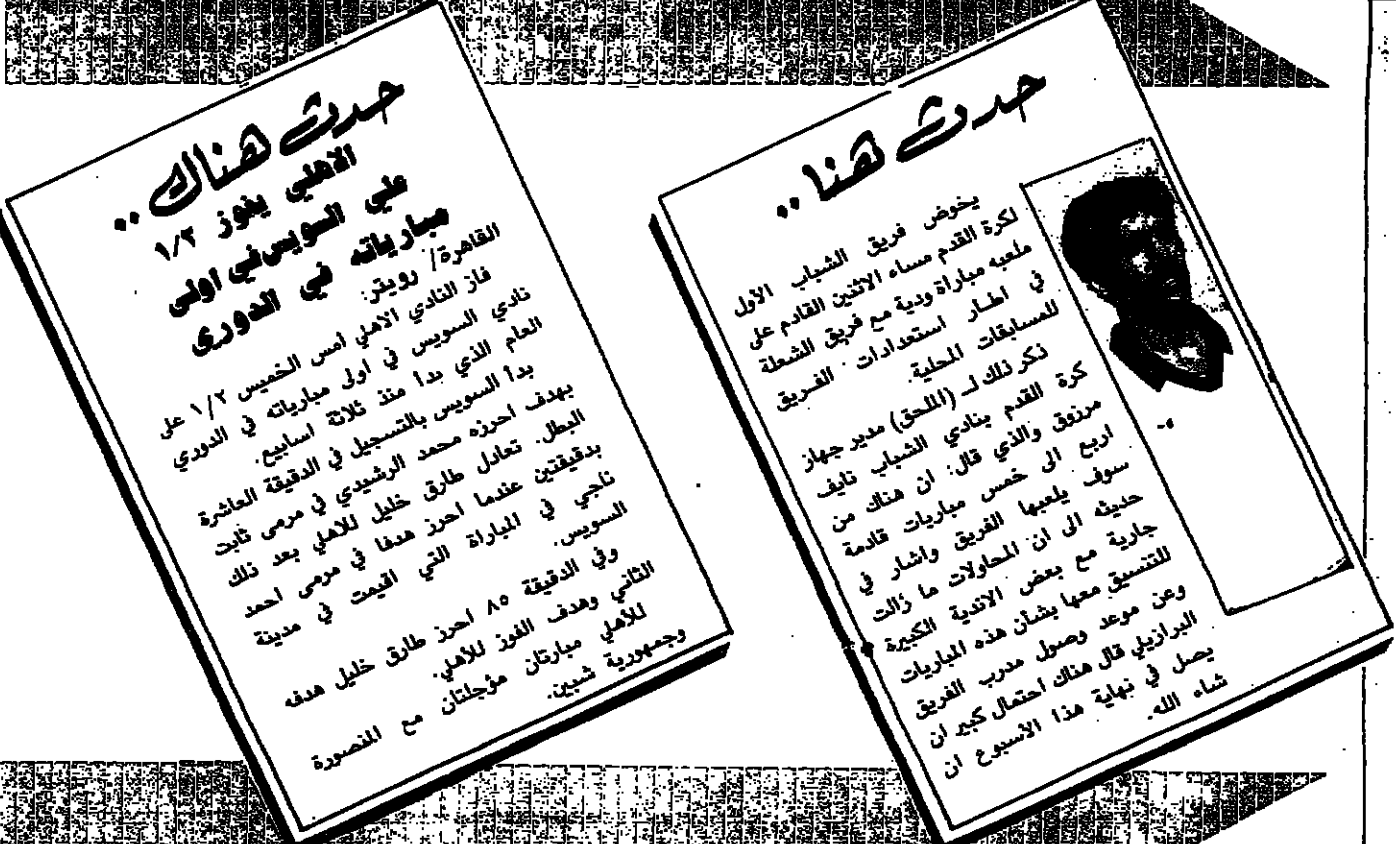 حدث هنا ..
يخوض فريق الشباب الأول
لكرة القدم مساء الاثنين القادم على
ملعبه مباراة ودية مع فريق الشعلة
في اطار استعدادات الفريق
للمسابقات المحلية.
ذكر ذلك لـ (الملحق) مدير جهاز
كرة القدم بنادي الشباب نايف
مرزوق والذي قال: ان هناك من
اربع الى خمس مباريات قادمة
سوف يلعبها الفريق واشار في
حديثه الى ان المحاولات ما زالت
جارية مع بعض الاندية الكبيرة
للتنسيق معها بشأن هذه المباريات
وعن موعد وصول مدرب الفريق
البرازيلي قال هناك احتمال كبير ان
يصل في نهاية هذا الأسبوع ان
شاء الله.
حدث هناك ..
الاهلي يفوز ١/٢
على السويس في اولى
مبارياته في الدوري
القاهرة/ رويتر:
فاز النادي الاهلي امس الخميس ١/٢ على
نادي السويس في اولى مبارياته في الدوري
العام الذي بدا منذ ثلاثة اسابيع.
بدا السويس بالتسجيل في الدقيقة العاشرة
بهدف احرزه محمد الرشيدي في مرمى ثابت
البطل. تعادل طارق خليل للاهلي بعد ذلك
بدقيقتين عندما احرز هدفا في مرمى احمد
ناجي في المباراة التي اقيمت في مدينة
السويس.
وفي الدقيقة ٨٥ احرز طارق خليل هدفه
الثاني وهدف الفوز للأهلي.
للأهلي مبارتان مؤجلتان مع المنصورة
وجمهورية شبين.